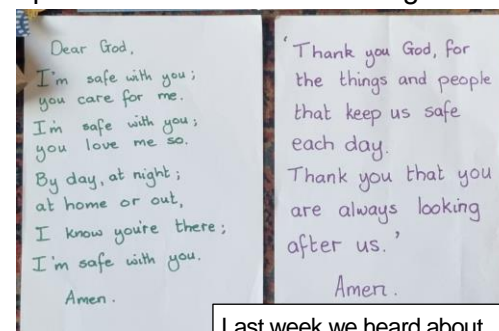 Dear God,
I'm safe with you;
you care for me.
I'm safe with you;
you love me so.
By day, at night;
at home or out,
I know you're there;
I'm safe with you.
Amen.
'Thank you God, for
the things and people
that keep us safe
each day.
Thank you that you
are always looking
after us.'
Amen.
Last week we heard about